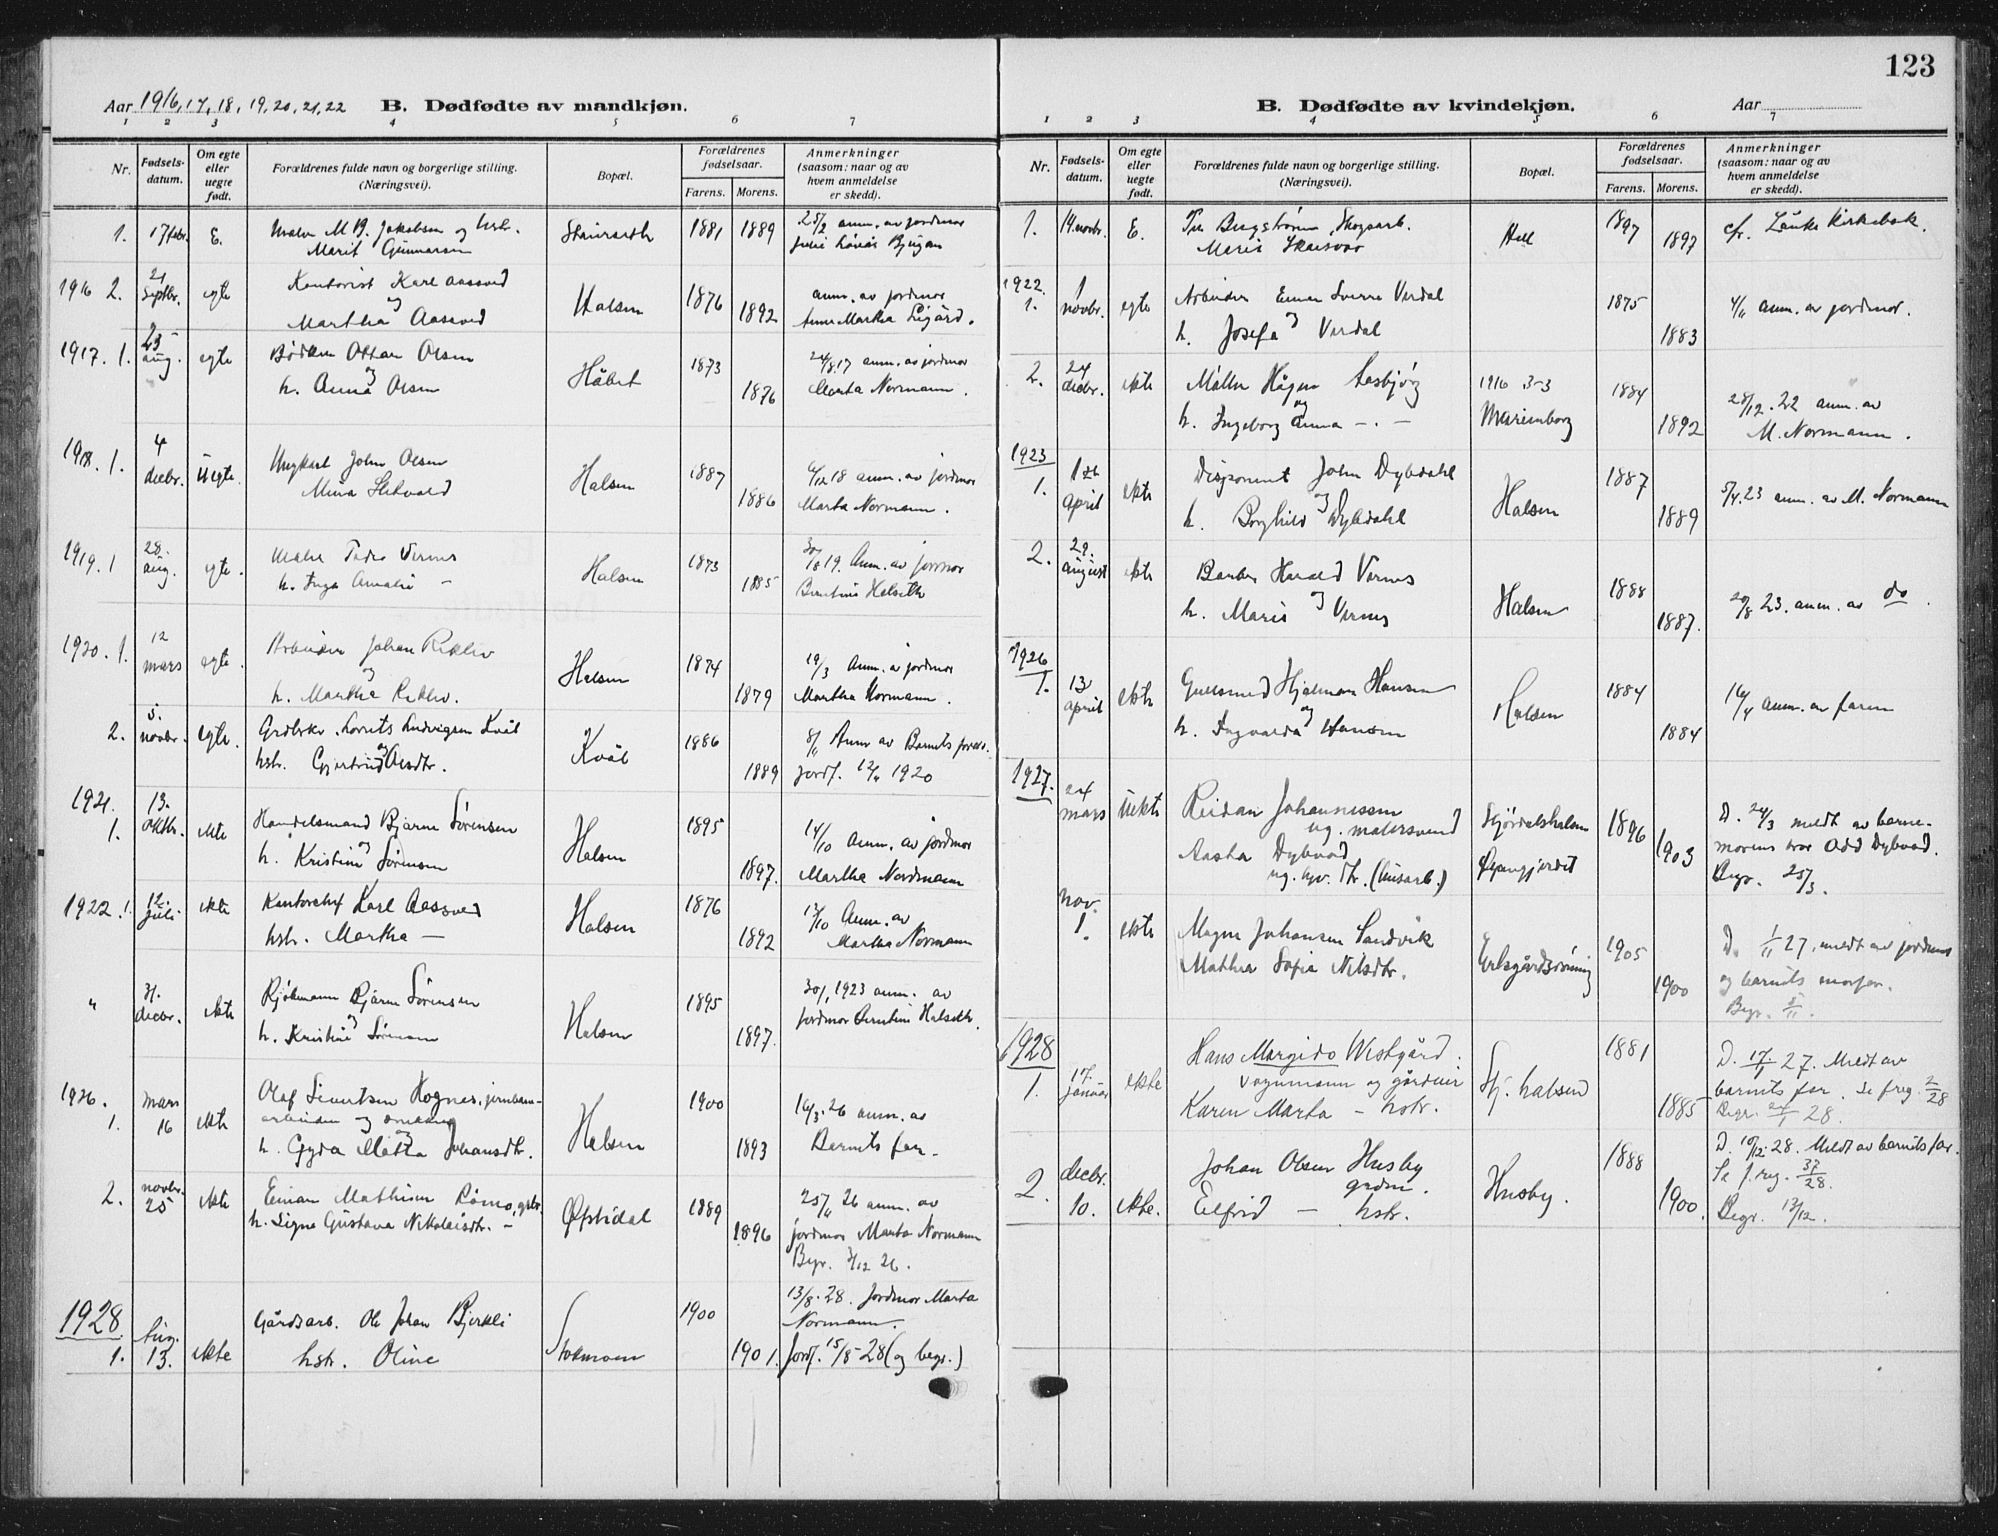 123
Aar 1916, 17, 18, 19, 20, 21, 22 B. Dødfødte av mandkjøn.
1 2 3 4 5 6 7
Nr. Fødsels-datum. Om egte eller uegte født. Forældrenes fulde navn og borgerlige stilling. (Næringsvei). Bopæl. Forældrenes fødselsaar. Farens. Morens. Anmerkninger (saasom: naar og av hvem anmeldelse er skedd).
1. 17 febr. E. Maler M. B. Jakobsen og hstr. 1881 1889 25/2 anm. av jordmor
Marit Gunnarsen
1916 2. 21 Septbr. egte Kontorist Karl Aassved Halsen 1876 1892 anm. av jordmor
og
Martha Aassved Anne Martha
1917. 1. 23 aug. egte Bødker Ottar Olsen Håbet 1873 24/8 17 anm. av jordmor
og
h. Anna Olsen 1876 Marta Normann.
1918. 1. 4 decbr. Uegte. Ungkarl John Olsen Halsen 1887 6/12 18 anm. av jordmor
Mina 1886 Marta Normann.
1919. 1 28. aug. egte. Maler Peder Vernes Halsen 1873 30/8 19. Anm. av jormor
h. Inga Amalie — 1885 Berntine Halseth
1920. 1. 12 mars egte. Arbeider Johan Halsen 1874 19/3 Anm. av jordmor
og
h. Martha 1879 Martha Normann.
2. 5. novbr. egte. Grdbrkr. Lorits Ludvigsen Kvål Kvål 1886 8/11 Anm av Barnets
hstr. Gjertrud Olsdtr. 1889 jordf. 12/11 1920
1921. 1. 13. oktbr. ekte Handelsmand Bjarne Sørensen Halsen 1895 14/10 Anm. av jordmor
og
h. Kristine Sørensen 1897. Martha Nordmann
1922. 1. 12. juli ekte Kontorchef Karl Aassved Halsen 1876 12/10 Anm. av
hstr. Martha — 1892 Martha Normann
" 31. decbr. ekte Kjøbmann Bjarne Sørensen Halsen 1895 30/1 1923 anm. av
og
h. Kristine Sørensen 1897. jordmor Berntine Halseth.
1926. 1. mars 16 ekte Olaf Sivertsen Hognes, jernbane- Halsen 1900 16/3. 26 anm. av
arbeider og
h. Gyda Mette Johansdtr. 1893 Barnets far.
2. novbr. 25 ekte Einar Mathisen Rømo, Øfstidal 1889 25/11 26 anm. av
h. Signe Gustava Nikolaisdtr. — 1896 jordmor Marta Normann
Begr. 3/12 26.
1928 13/8. 28. Jordmor Marta
1. Aug. 13. ekte Gårdsarb. Ole Johan Bjerkli Stokmoen 1900 Normann.
hstr. Oline 1901. Jordf. 15/8 28 (og begr.)
B. Dødfødte av kvindekjøn. Aar
1 2 3 4 5 6 7
Nr. Fødsels-datum. Om egte eller uegte født. Forældrenes fulde navn og borgerlige stilling. (Næringsvei). Bopæl. Forældrenes fødselsaar. Farens. Morens. Anmerkninger (saasom: naar og av hvem anmeldelse er skedd).
1. 14. novbr. E. Bergstrøm, Skogsarb. Hell 1897 cfr. Lånke Kirkebok.
Marie 1897
1922. 1. 1 novbr. egte Arbeider Einar Sverre Verdal 1875 4/11 anm. av jordmor.
og
h. Josefa Verdal 1883
2. 24 decbr. ekte Møller Hågen 1916 3-3 1884 28/12. 22 anm. av
og
h. Ingeborg Anna — . — Marienborg 1892 M. Normann.
1923 1. 1ste April ekte Disponent John Dybdahl Halsen 1887 5/4. 23 anm. av M. Normann
og
h. Borghild Dybdahl 1889
2. 29. august ekte Barber Harald Vernes Halsen 1888 29/8 23. anm. av do.
og
h. Marie Vernes 1887.
1926 1. 13 april ekte Gullsmed Hjalmar Hansen Halsen 1884 16/4 anm. av faren
og
h. Ingvalda Hansen 1884
1927. 24 mars Uekte Reidar Johannessen Stjørdalshalsen 1896 D. 24/3 meldt av barne-
ug. malersvend
Aasta Dybvad Øyangjerdet 1903 morens bror Odd Dybvad.
ug. (Husarb.) Begr. 25/3.
nov. 1. ekte Magne Johansen Sandvik 1905 D. 1/11 27, meldt av jordmor
Mathea Sofie Nilsdtr. 1900 og barnets morfar.
Begr. 5/11.
1928 1. 17. januar ekte Hans Margido Westgård. Stj. halsen 1881 D. 17/1 27. Meldt av
vognmann og gårdeier barnets far. Se f reg. 2/28
Karen Marta — hstr. 1885 Begr. 24/1 28.
2. decbr. 10. ekte. Johan Olsen Husby Husby. 1888 D. 10/12. 28. Meldt av barnets far.
grdm. Se f. reg. 37/28.
Elfrid — hstr. 1900. Begr. 13/12.